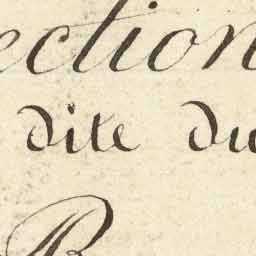 ection
dite du
B